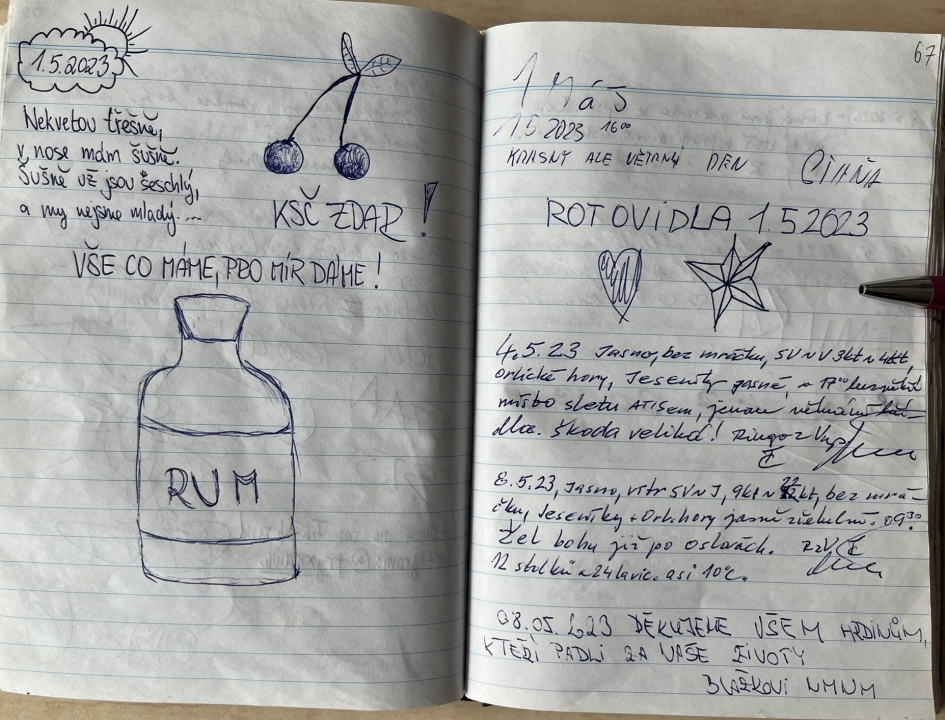 1.5.2023
Nekvetou třešně,
v nose mám šušně.
Šušně už jsou seschlý,
a my nejsme mladý....
KSČ ZDAR!
VŠE CO MÁME, PRO MÍR DÁME!
RUM
67
1 Máj
1.5.2023 16⁰⁰
KRÁSNÝ ALE VĚTRNÝ DEN
ROTOVIDLA 1.5 2023
4.5.23 Jasno, bez mráčku, SV N V 3kt N 4kt,
Orlické hory, Jeseníky jasné, 17⁰⁰
místo sletu ATISem, jenom
dla. Škoda veliká!
8.5.23, Jasno, vítr SV N J, 9kt N 22kt, bez mrá-
čku, Jeseníky + Orl. hory jasně zřetelné. 09³⁰
Žel bohu již po oslavách.
12 stolků a 24 lavic. asi 10°C.
08.05.2023 DĚKUJEME VŠEM HRDINŮM,
KTEŘÍ PADLI ZA NAŠE ŽIVOTY
BLAŽKOVI NMNM